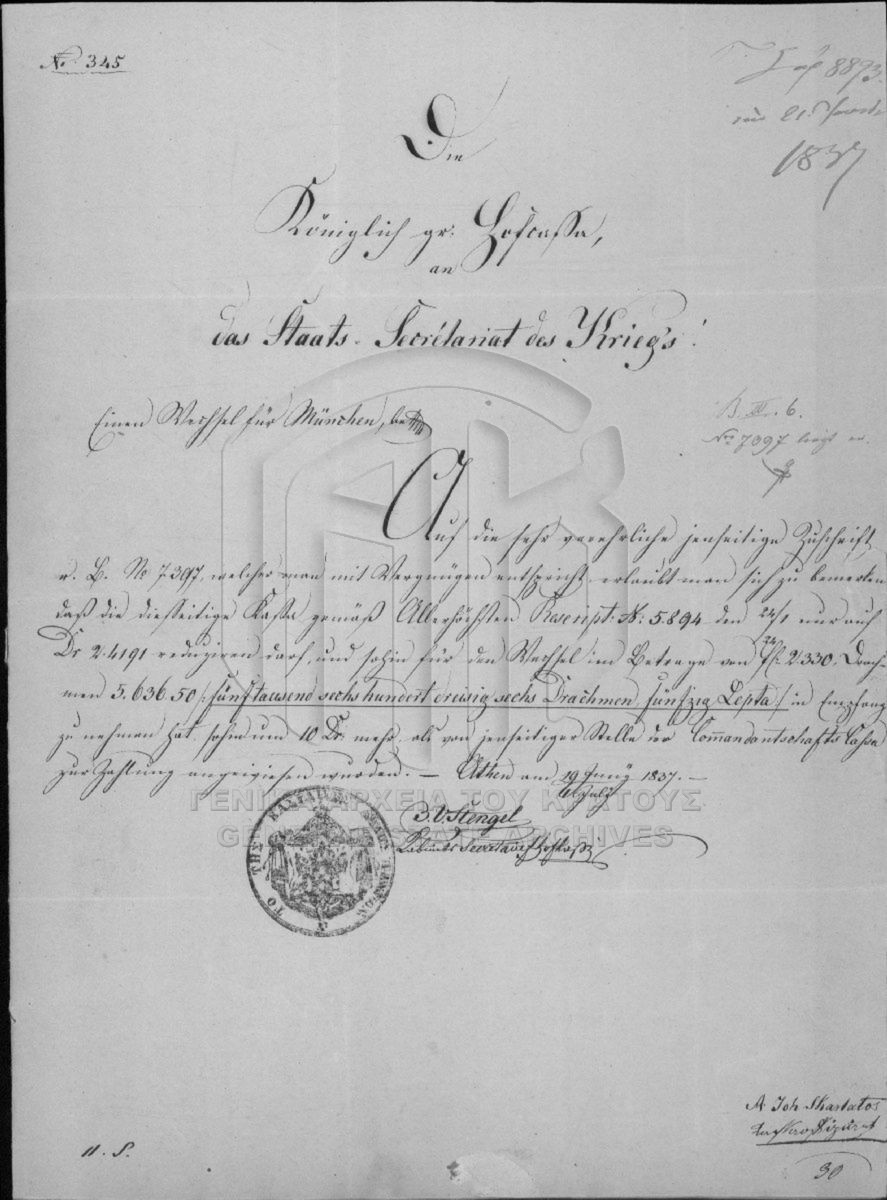 No. 345
8893
1837
Die
Königlich gr: Hofcassa,
an
das Staats-Secrétariat des Krieg's!
Einen Wechsel für München, betr
B. III. 6.
No 7397 liegt
Auf die sehr verehrliche jenseitige Zuschrift
v. B. No 7397, welcher man mit Vergnügen entspricht erlaubt man sich zu bemerken
daß die diesseitige Kassa gemäß Allerhöchsten Rescript. No: 5894 den 24/1 nur auf
Dr 2.4191 reduziren darf, und sohin für den Wechsel im Betrage von f. 2330. Drach-
men 5.636.50 /: fünftausend sechs hundert dreisig sechs Drachmen, fünfzig Lepta :/ in Empfang
zu nehmen hat, sohin um 10 Dr. mehr als von jenseitiger Stelle der Commandantschafts Cassa
zur Zahlung angewiesen wurden. — Athen am 19 Juny 1837. —
1 July
ΤΗΣ ΒΑΣΙΛΙΚΗΣ
ΤΟ
B. v. Stengel
Secretaire
ΓΕΝΙΚΑ ΑΡΧΕΙΑ ΤΟΥ ΚΡΑΤΟΥΣ
GENERAL STATE ARCHIVES
A Joh Skarlatos
30